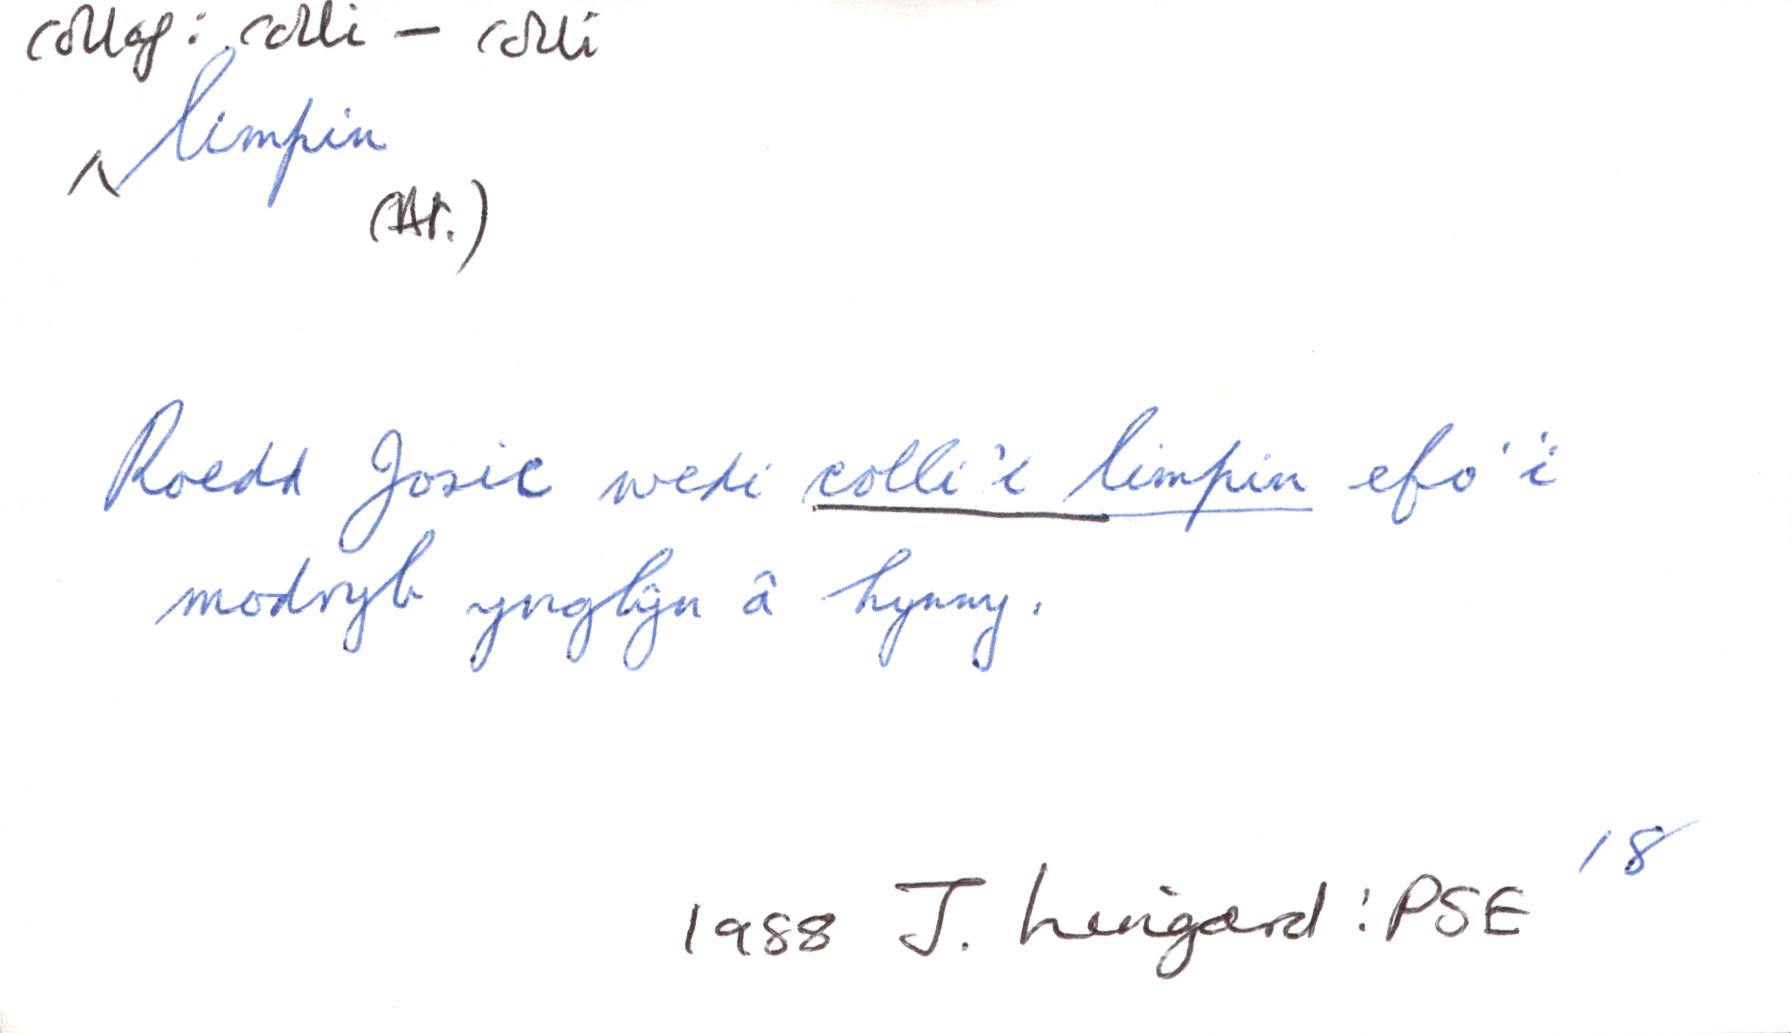 collaf: colli – colli
limpin
Roedd Josie wedi colli'i limpin efo'i
modryb ynglŷn â hynny.
18
1988 J. Lingard: PSE